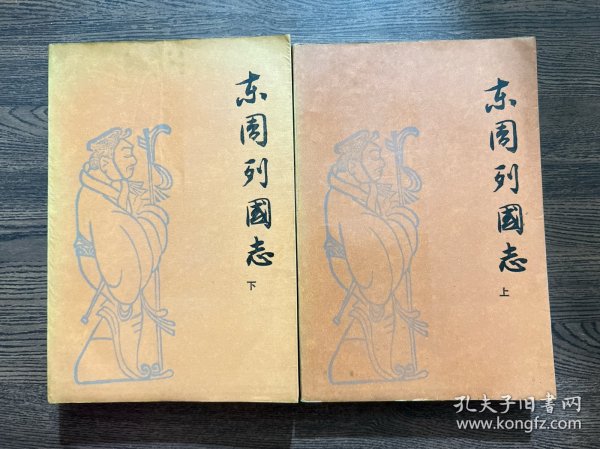 东周列國志
下
东周列國志
上
孔夫子旧书网
www.kongfz.com